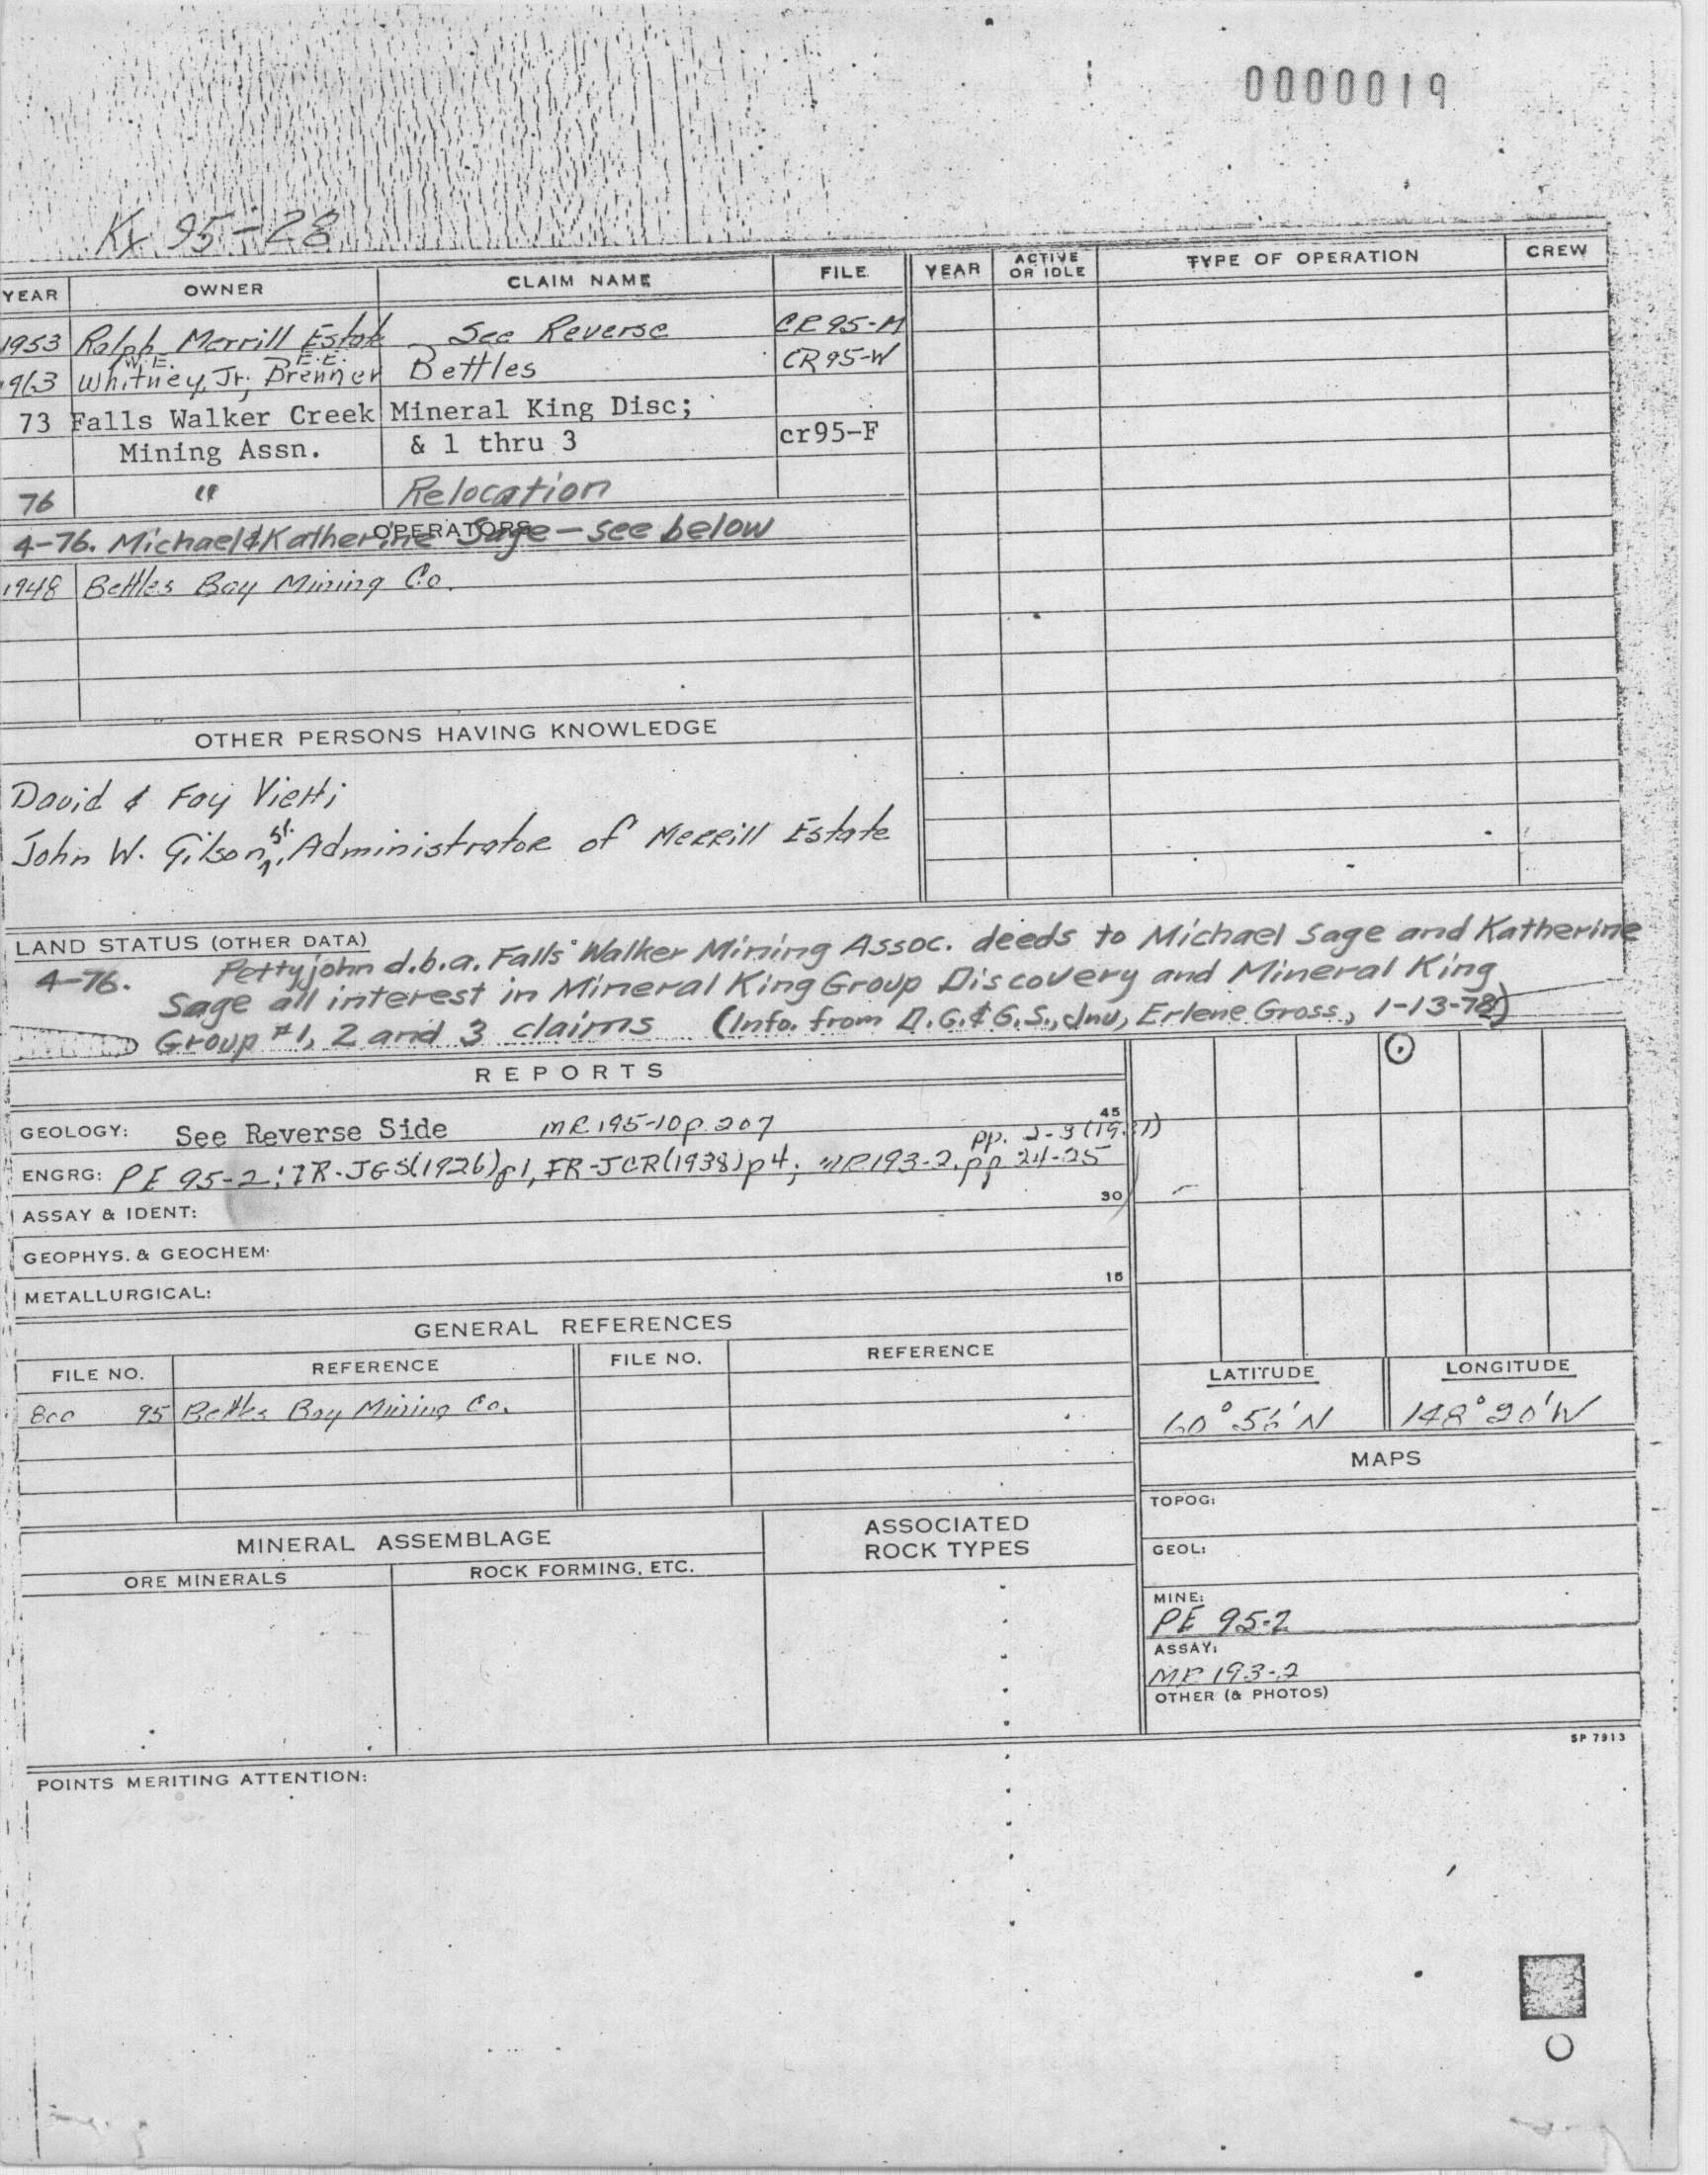 0000019
Kx 95-28
YEAR OWNER CLAIM NAME FILE YEAR ACTIVE OR IDLE TYPE OF OPERATION CREW
1953 Ralph Merrill Estate See Reverse CR 95-M
W.E. E.E.
1963 Whitney, Jr; Brenner Bettles CR 95-W
73 Falls Walker Creek Mineral King Disc;
Mining Assn. & 1 thru 3 cr95-F
76 " Relocation
OPERATORS
4-76. Michael & Katherine Sage - see below
1948 Bettles Bay Mining Co.
OTHER PERSONS HAVING KNOWLEDGE
David & Foy Vietti
John W. Gilson, Sr. Administrator of Merrill Estate
LAND STATUS (OTHER DATA)
4-76. Pettyjohn d.b.a. Falls Walker Mining Assoc. deeds to Michael Sage and Katherine
Sage all interest in Mineral King Group Discovery and Mineral King
Group #1, 2 and 3 claims (Info. from D.G.& G.S., Jnu, Erlene Gross, 1-13-78)
REPORTS
45
GEOLOGY: See Reverse Side MR 195-10 p. 207
pp. 2-3
ENGRG: PE 95-2; IR-JGS(1926)p1, IR-JCR(1938)p4; MR 193-2, pp 24-25
30
ASSAY & IDENT:
GEOPHYS. & GEOCHEM.
15
METALLURGICAL:
GENERAL REFERENCES
FILE NO. REFERENCE FILE NO. REFERENCE
95 Bettles Bay Mining Co.
LATITUDE LONGITUDE
60° 56' N 148° 20' W
MAPS
TOPOG:
GEOL:
MINE:
PE 95-2
ASSAY:
MR 193-2
OTHER (& PHOTOS)
MINERAL ASSEMBLAGE ASSOCIATED ROCK TYPES
ORE MINERALS ROCK FORMING, ETC.
SP 7913
POINTS MERITING ATTENTION: